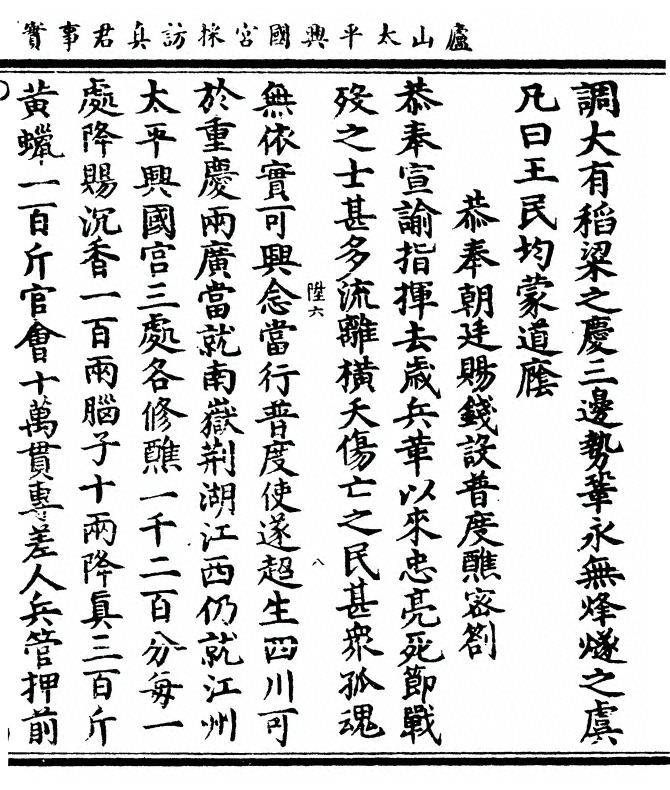 廬山太平興國宮採訪真君事實
調大有稻粱之慶三邊勢鞏永無烽燧之虞
凡曰王民均蒙道廕
恭奉朝廷賜錢設普度醮密劄
恭奉宣諭指揮去歲兵革以來忠亮死節戰
歿之士甚多流離橫夭傷亡之民甚衆孤魂
陞六
八
無依實可興念當行普度使遂超生四川可
於重慶兩廣當就南嶽荆湖江西仍就江州
太平興國宮三處各修醮一千二百分每一
處降賜沉香一百兩腦子十兩降真三百斤
黃蠟一百斤官會十萬貫專差人兵管押前